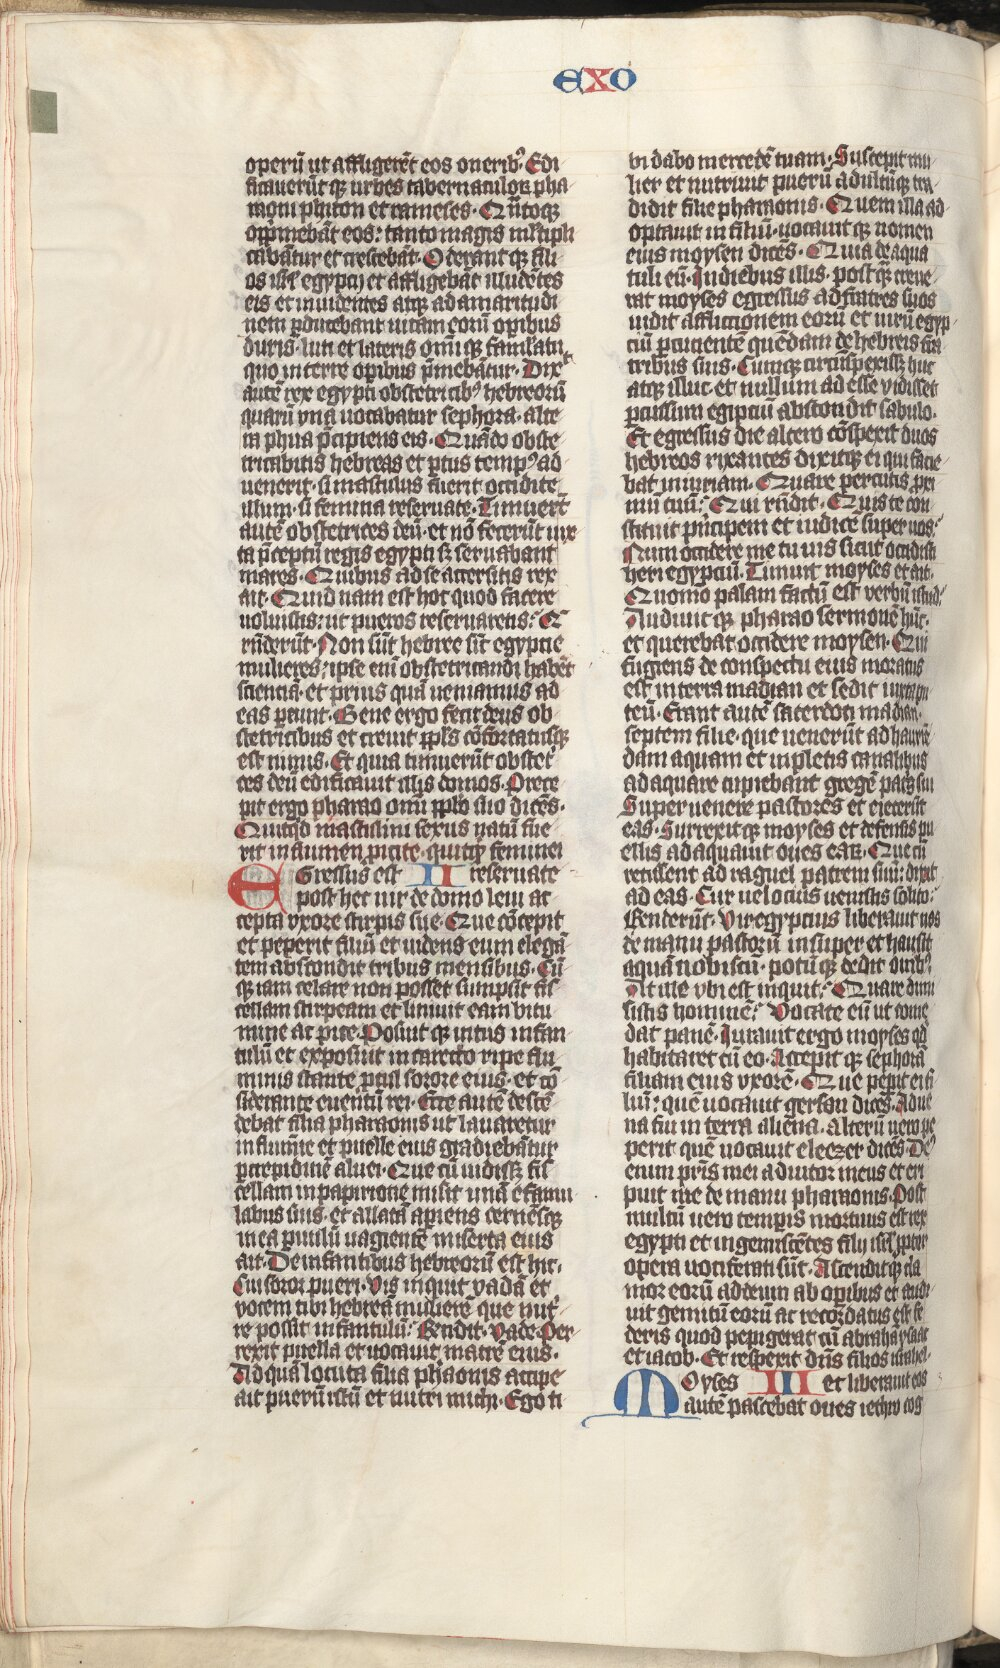 EXO
operū ut affligerēt eos onerib⁹. Edi
ficaverūt qꝫ urbes tabernaculoꝝ pha
raoni phiton et rameses. Qn̄toqꝫ
opp̄mebāt eos: tanto magis m̄ltipli
cabātur et crescebāt. Oderant qꝫ fili
os isrl̄ egyptij et affligebāt illudētes
eis et invidentes atqꝫ ad amaritudi
nem ꝑducebant uitam eorū oꝑibus
duris. luti et lateris om̄iqꝫ famulatu
quo in terre oꝑibus p̄mebātur. Dix̄
autē rex egypti obstetricib⁹ hebreorū
quarū vna uocabatur sephora. alte
ra phua p̄cipiens eis. Quādo obste
tricabitis hebreas et ꝑtus temp⁹ ad
uenerit. si masculus fuerit occidite
illum. si femina reseruate. Timuerr̄t
autē obstetrices deū. et nō fecerūt iux
ta p̄ceptū regis egypti sꝫ seruabant
mares. Quibus ad se accersitis rex
ait. Quid nam est hoc quod facere
uoluistis: ut pueros reseruaretis: Q
rn̄derūt. Non sūt hebree sic̄ egyptie
mulieres: ipse eni obstetricandi habēt
sciencia. et prius quā ueniamus ad
eas ꝑiunt. Bene ergo fecit deus ob
stetricibus et creuit ppl̄s cōfortatusqꝫ
est nimis. Et quia timuerūt obstet
ces deū edificauit illis domos. Prece
pit ergo pharao omi pplo suo dicēs.
Quicqd masculini sexus natū fue
rit in flumen ꝓicite. quicqꝫ feminei
Egressus est II reseruate
post hec uir de domo leui ac
cepta vxore stirpis sue. Que cōcepit
et peperit filiū et videns eum elegā
tem abscondit tribus mensibus. Cū
qꝫ iam celare non posset sumpsit fis
cellam scirpeam et liniuit eam bitu
mine ac pice. Posuit qꝫ intus infan
tulū et exposuit in carecto ripe flu
minis stante ꝓcul sorore eius. et cō
siderante euentū rei. Ecce autē descē
debat filia pharaonis ut lauaretur
in flumīe et puelle eius gradiebātur
ꝑ crepidinē aluei. Que cū uidissꝫ fis
cellam in papirione misit unā e famu
labus suis. et allatā apiens cernēsqꝫ
in ea ꝑuulū uagientē miserta eius
ait. De infantibus hebreorū est hic.
Cui soror pueri. Vis inquit vadā et
vocem tibi hebreā mulierē que nut
re possit infantulū: Rendit. Vade. Per
rexit puella et uocauit matrē eius.
Ad quā locuta filia phaonis accipe
ait puerū istū et nutri michi. Ego ti
bi dabo mercedē tuam. Suscepit mu
lier et nutriuit puerū adultūqꝫ tra
didit filie pharaonis. Quem illa ad
optauit in filiū. uocauit qꝫ nomen
eius moysen dicēs. Quia de aqua
tuli eū. In diebus illis. postqꝫ creue
rat moyses egressus ad fratres suos
uidit afflictionem eorū et uirū egyp
ciū ꝑcucientē quēdam de hebreis fra
tribus suis. Cumqꝫ circūspexissꝫ huc
atqꝫ illuc. et nullum adesse vidisset
ꝑcussum egiptiū abscondit sabulo.
Et egressus die altero cōspexit duos
hebreos rixantes dixitqꝫ ei qui facie
bat iniuriam. Quare percutis ꝓxi
mū tuū: Qui rn̄dit. Quis te con
stituit principem et iudicē super nos:
Num occidere me tu uis sicut occidisti
heri egyptiū. Timuit moyses et ait.
Quomō palam factū est verbū istud:
Audiuit qꝫ pharao sermonē hūc.
et querebat occidere moysen. Qui
fugiens de conspectu eius moratus
est in terra madian et sedit iuxta pu
teū. Erant autē sacerdoti madian
septem filie. que uenerūt ad hauriē
dam aquam et inpletis canalibus
adaquare cupiebant gregē patꝫ sui
Superuenere pastores et eiecerūt
eas. Surrexitqꝫ moyses et defensis pu
ellis adaquauit oues eaꝝ. Que cū
redissent ad raguel patrem suū: dixit
ad eas. Cur uelocius uenistis solito:
Renderūt. Vir egyptius liberauit nos
de manu pastorū insuper et hausit
aquā nobiscū. potū qꝫ dedit ouib⁹.
At ille vbi est inquit: Quare dimi
sistis hominē: Vocate eū ut come
dat panē. Iurauit ergo moyses qd̄
habitaret cū eo. Accepit qꝫ sephorā
filiam eius vxorē. Que peꝑit ei fi
liū: quē uocauit gersan dicēs. Adue
na fui in terra aliena. Alterū uero pe
perit quē uocauit eleezer dicēs. De⁹
enim pr̄is mei adiutor meus et eri
puit me de manu pharaonis. Post
multū uero tempis mortuus est rex
egypti et ingemiscētes filij isrl̄ ꝓpter
opera uociferati sūt. Ascenditqꝫ cla
mor eorū ad deum ab oꝑibus et audi
uit gemitū eorū ac recordatus est fe
deris quod pepigerat cū abrahā ysaac
et iacob. Et respexit dn̄s filios israhel
Moyses III et liberauit eos
autē pascebat oues iethro cog